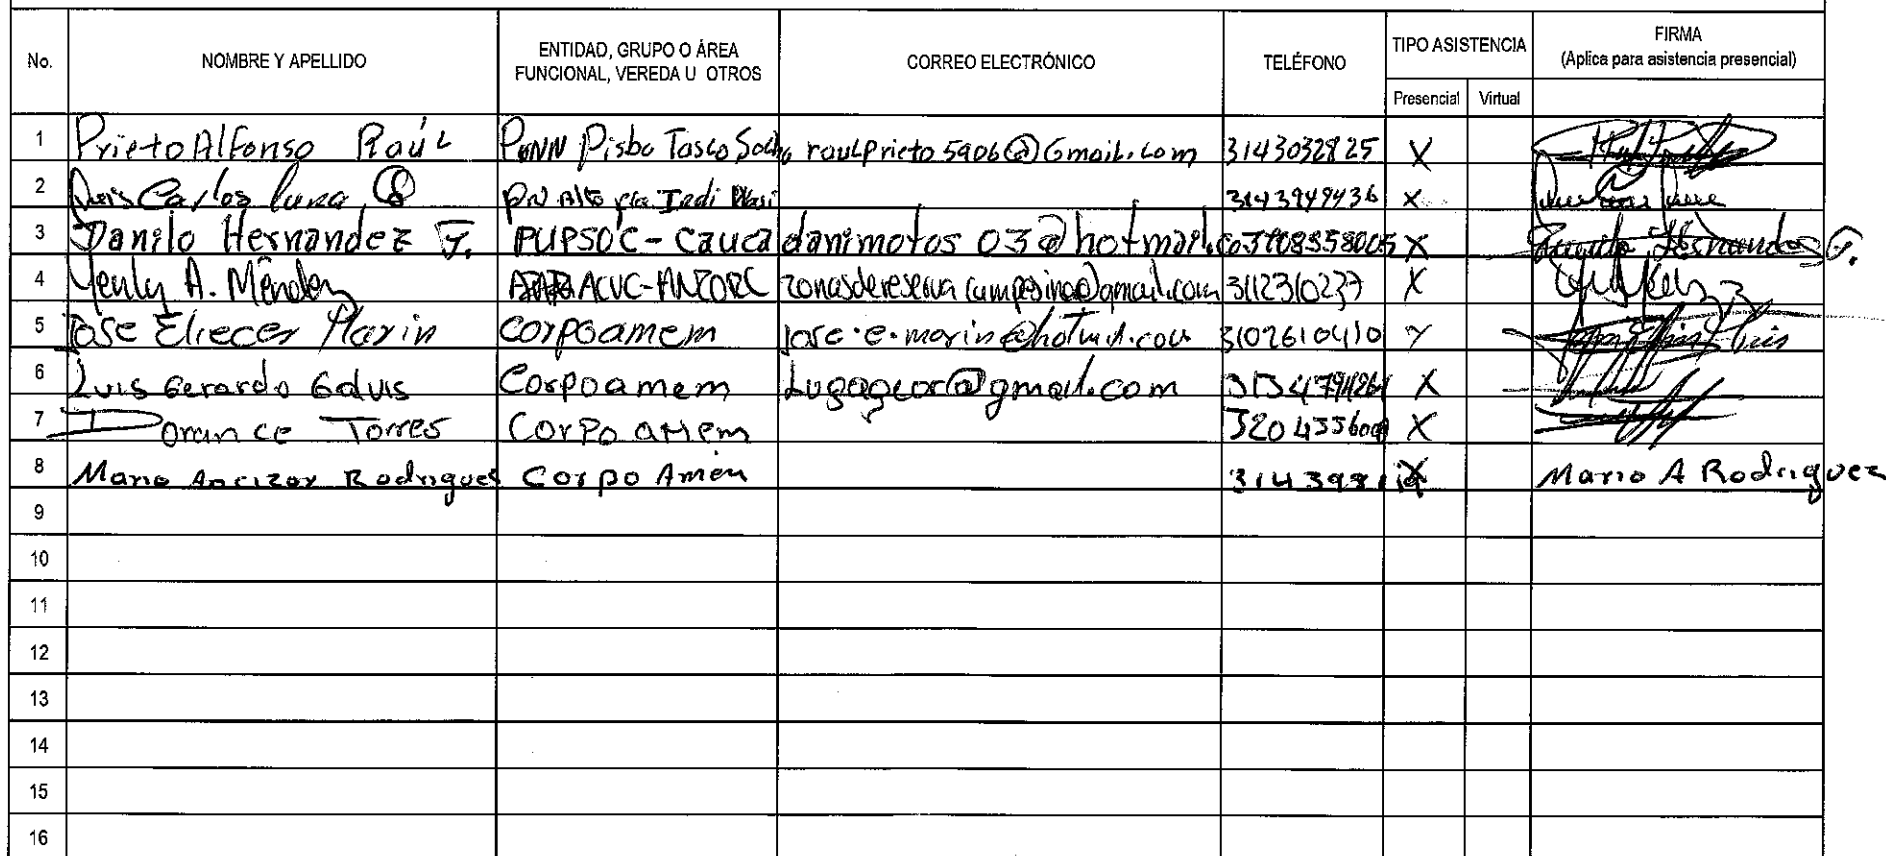 No. NOMBRE Y APELLIDO ENTIDAD, GRUPO O ÁREA FUNCIONAL, VEREDA U OTROS CORREO ELECTRÓNICO TELÉFONO TIPO ASISTENCIA FIRMA (Aplica para asistencia presencial)
Presencial Virtual
1 Prieto Alfonso Raúl PNN Pisba Tasco raulprieto5906@Gmail.com 3143032825 X
2 Luis Carlos Luna 3143949436 X
3 Danilo Hernandez G. PUPSOC - Cauca danimotos03@hotmail.co X Hernandez G.
4 Yenly A. Méndez ACVC-ANZORC zonasdereservacampesina@gmail.com 3112310237 X
5 Jose Eliecer Marin Corpoamem jose.e.marin@hotmail.com 3102610410 X
6 Luis Gerardo Galvis Corpoamem Lugageor@gmail.com X
7 Dorance Torres Corpoamem X
8 Mario Ancizar Rodrigues Corpo Amem X Mario A Rodriguez
9
10
11
12
13
14
15
16